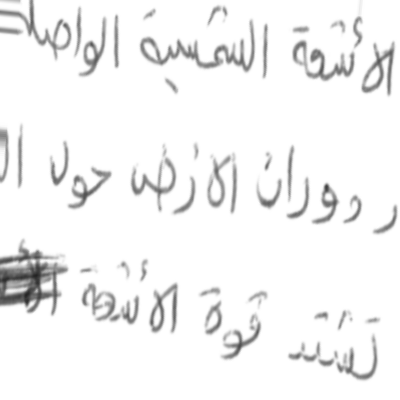 الأشعة الشمسية الواصلة
ر دوران الأرض حول ال
تشتد قوة الأشعة